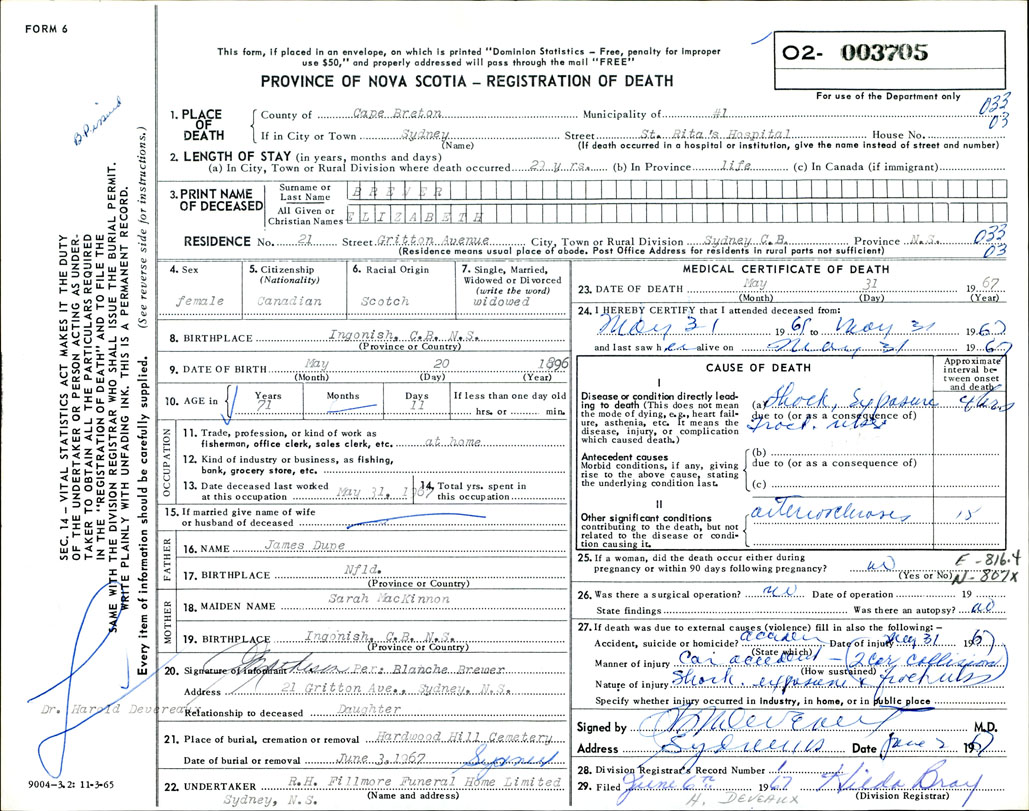 FORM 6
This form, if placed in an envelope, on which is printed "Dominion Statistics – Free, penalty for improper
use $50," and properly addressed will pass through the mail "FREE"
PROVINCE OF NOVA SCOTIA – REGISTRATION OF DEATH
02- 003705
For use of the Department only
033
03
1. PLACE OF DEATH
County of Cape Breton Municipality of #1
If in City or Town Sydney Street St. Rita's Hospital House No.
(Name) (If death occurred in a hospital or institution, give the name instead of street and number)
2. LENGTH OF STAY (in years, months and days)
(a) In City, Town or Rural Division where death occurred 20 yrs. (b) In Province life (c) In Canada (if immigrant)
3. PRINT NAME OF DECEASED
Surname or Last Name BREWER
All Given or Christian Names ELIZABETH
RESIDENCE No. 21 Street Gritton Avenue City, Town or Rural Division Sydney C.B. Province N.S. 033
(Residence means usual place of abode. Post Office Address for residents in rural parts not sufficient) 03
4. Sex female
5. Citizenship (Nationality) Canadian
6. Racial Origin Scotch
7. Single, Married, Widowed or Divorced (write the word) widowed
8. BIRTHPLACE Ingonish, C.B. N.S.
(Province or Country)
9. DATE OF BIRTH May 20 1896
(Month) (Day) (Year)
10. AGE in Years 71 Months Days 11 If less than one day old hrs. or min.
OCCUPATION
11. Trade, profession, or kind of work as fisherman, office clerk, sales clerk, etc. at home
12. Kind of industry or business, as fishing, bank, grocery store, etc.
13. Date deceased last worked at this occupation May 31, 1967
14. Total yrs. spent in this occupation
15. If married give name of wife or husband of deceased
FATHER
16. NAME James Dupe
17. BIRTHPLACE Nfld.
(Province or Country)
MOTHER
18. MAIDEN NAME Sarah MacKinnon
19. BIRTHPLACE Ingonish, C.B. N.S.
(Province or Country)
20. Signature of informant Per: Blanche Brewer
Address 21 Gritton Ave., Sydney, N.S.
Dr. Harold Devereaux
Relationship to deceased Daughter
21. Place of burial, cremation or removal Hardwood Hill Cemetery
Date of burial or removal June 3, 1967 Sydney
22. UNDERTAKER R.H. Fillmore Funeral Home Limited
Sydney, N.S. (Name and address)
9004-3.2: 11-3-65
MEDICAL CERTIFICATE OF DEATH
23. DATE OF DEATH May 31 1967
(Month) (Day) (Year)
24. I HEREBY CERTIFY that I attended deceased from:
May 31 1967 to May 31 1967
and last saw her alive on May 31 1967
CAUSE OF DEATH
Approximate interval between onset and death
I
Disease or condition directly leading to death (This does not mean the mode of dying, e.g., heart failure, asthenia, etc. It means the disease, injury, or complication which caused death.)
(a) Shock, exposure 4 hrs
due to (or as a consequence of)
fract. ribs
Antecedent causes
Morbid conditions, if any, giving rise to the above cause, stating the underlying condition last.
(b)
due to (or as a consequence of)
(c)
II
Other significant conditions contributing to the death, but not related to the disease or condition causing it.
arteriosclerosis 15
25. If a woman, did the death occur either during pregnancy or within 90 days following pregnancy? no
(Yes or No)
E-816.4
N-807X
26. Was there a surgical operation? no Date of operation 19
State findings Was there an autopsy? no
27. If death was due to external causes (violence) fill in also the following: –
Accident, suicide or homicide? accident Date of injury May 31 1967
(State which)
Manner of injury Car accident – (2 car collision)
(How sustained)
Nature of injury Shock, exposure & fract ribs
Specify whether injury occurred in industry, in home, or in public place
Signed by M.D.
Address Sydney NS Date June 2 1967
28. Division Registrar's Record Number
29. Filed June 6th 1967 Hilda Bray
H. DEVEAUX (Division Registrar)
SEC. 14 – VITAL STATISTICS ACT MAKES IT THE DUTY
OF THE UNDERTAKER OR PERSON ACTING AS UNDER-
TAKER TO OBTAIN ALL THE PARTICULARS REQUIRED
IN THE "REGISTRATION OF DEATH" AND TO FILE THE
SAME WITH THE DIVISION REGISTRAR WHO SHALL ISSUE THE BURIAL PERMIT.
WRITE PLAINLY WITH UNFADING INK. THIS IS A PERMANENT RECORD.
Every item of information should be carefully supplied. (See reverse side for instructions.)